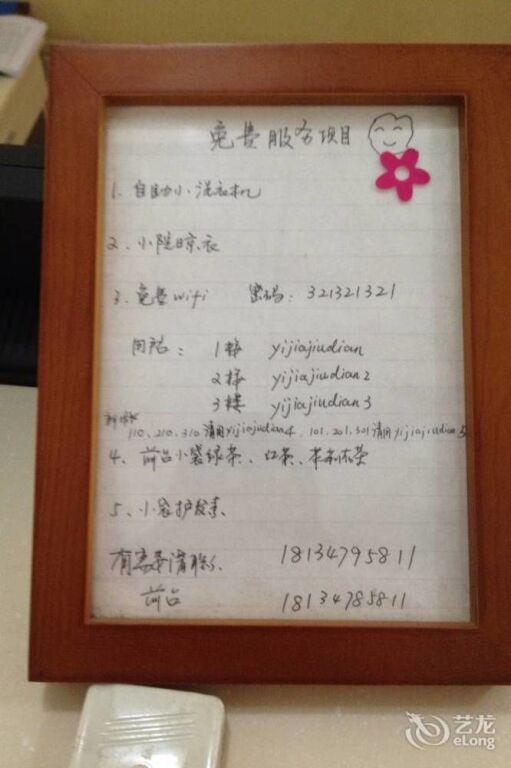 免费服务项目
1、自助小洗衣机
2、小院晾衣
3、免费wifi 密码：321321321
用户名： 1楼 yijiajiudian
2楼 yijiajiudian2
3楼 yijiajiudian3
110、210、310请用yijiajiudian4、101、201、301请用yijiajiudian5
4、前台小袋绿茶、红茶、
5、小袋护发素、
有需要请联系 18134795811
前台 18134785811
艺龙
eLong